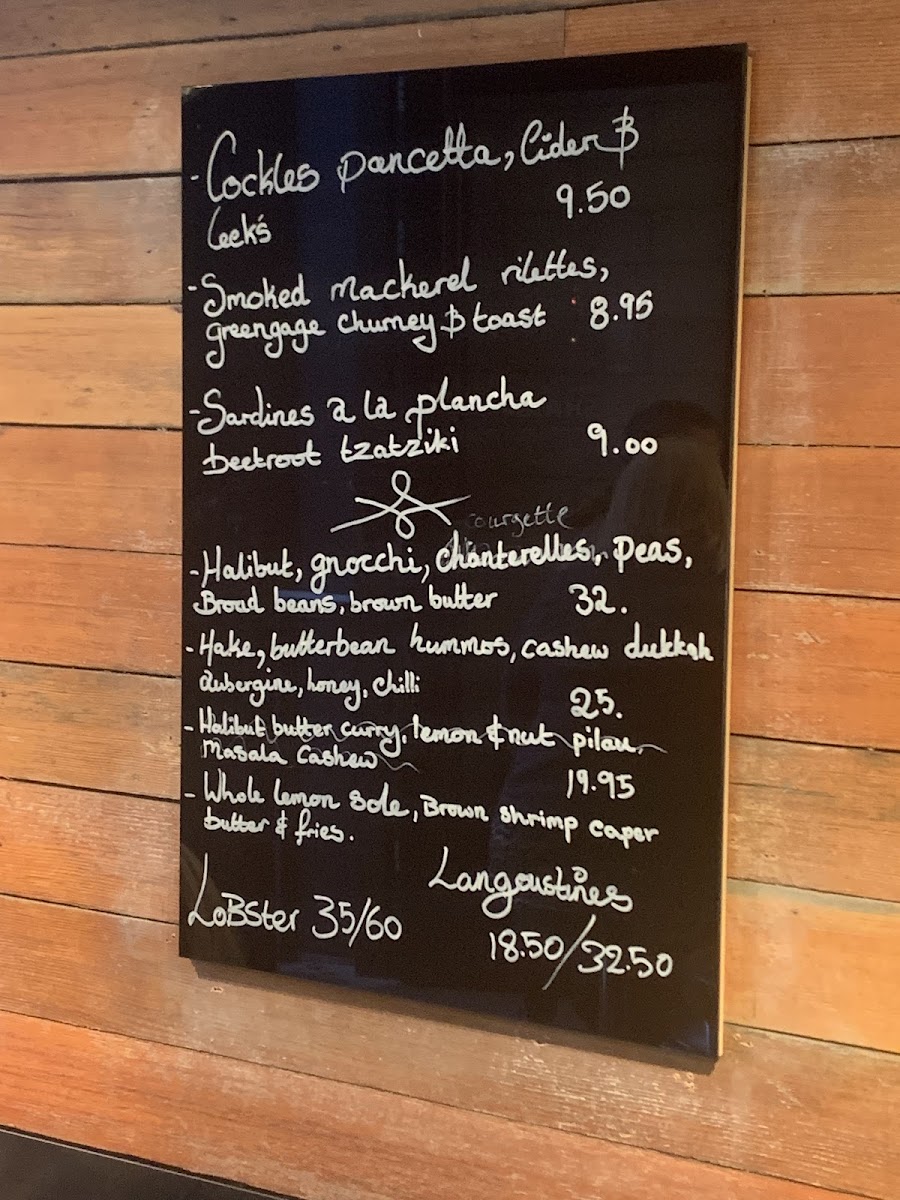 - Cockles pancetta, Cider &
leeks 9.50
- Smoked mackerel rilettes,
greengage churney & toast 8.95
- Sardines a la plancha
beetroot tzatziki 9.00
courgette
- Halibut, gnocchi, chanterelles, peas,
Broad beans, brown butter 32.
- Hake, butterbean hummos, cashew dukkah
aubergine, honey, chilli 25.
- Halibut butter curry, lemon & nut pilau
Masala Cashew 19.95
- Whole lemon sole, Brown shrimp caper
butter & fries.
Langoustines
LoBSter 35/60
18.50/32.50